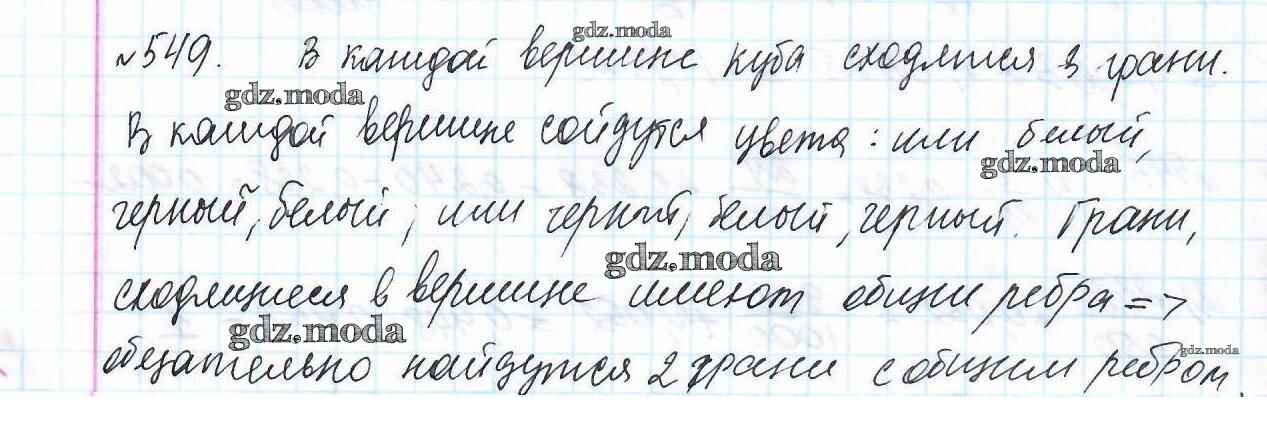 gdz.moda
№549. В каждой вершине куба сходятся 3 грани.
gdz.moda
В каждой вершине сойдутся цвета: или белый,
gdz.moda
черный, белый; или черный, белый, черный. Грани,
gdz.moda
сходящиеся в вершине имеют общие ребра =>
gdz.moda
gdz.moda
обязательно найдутся 2 грани с общим ребром,